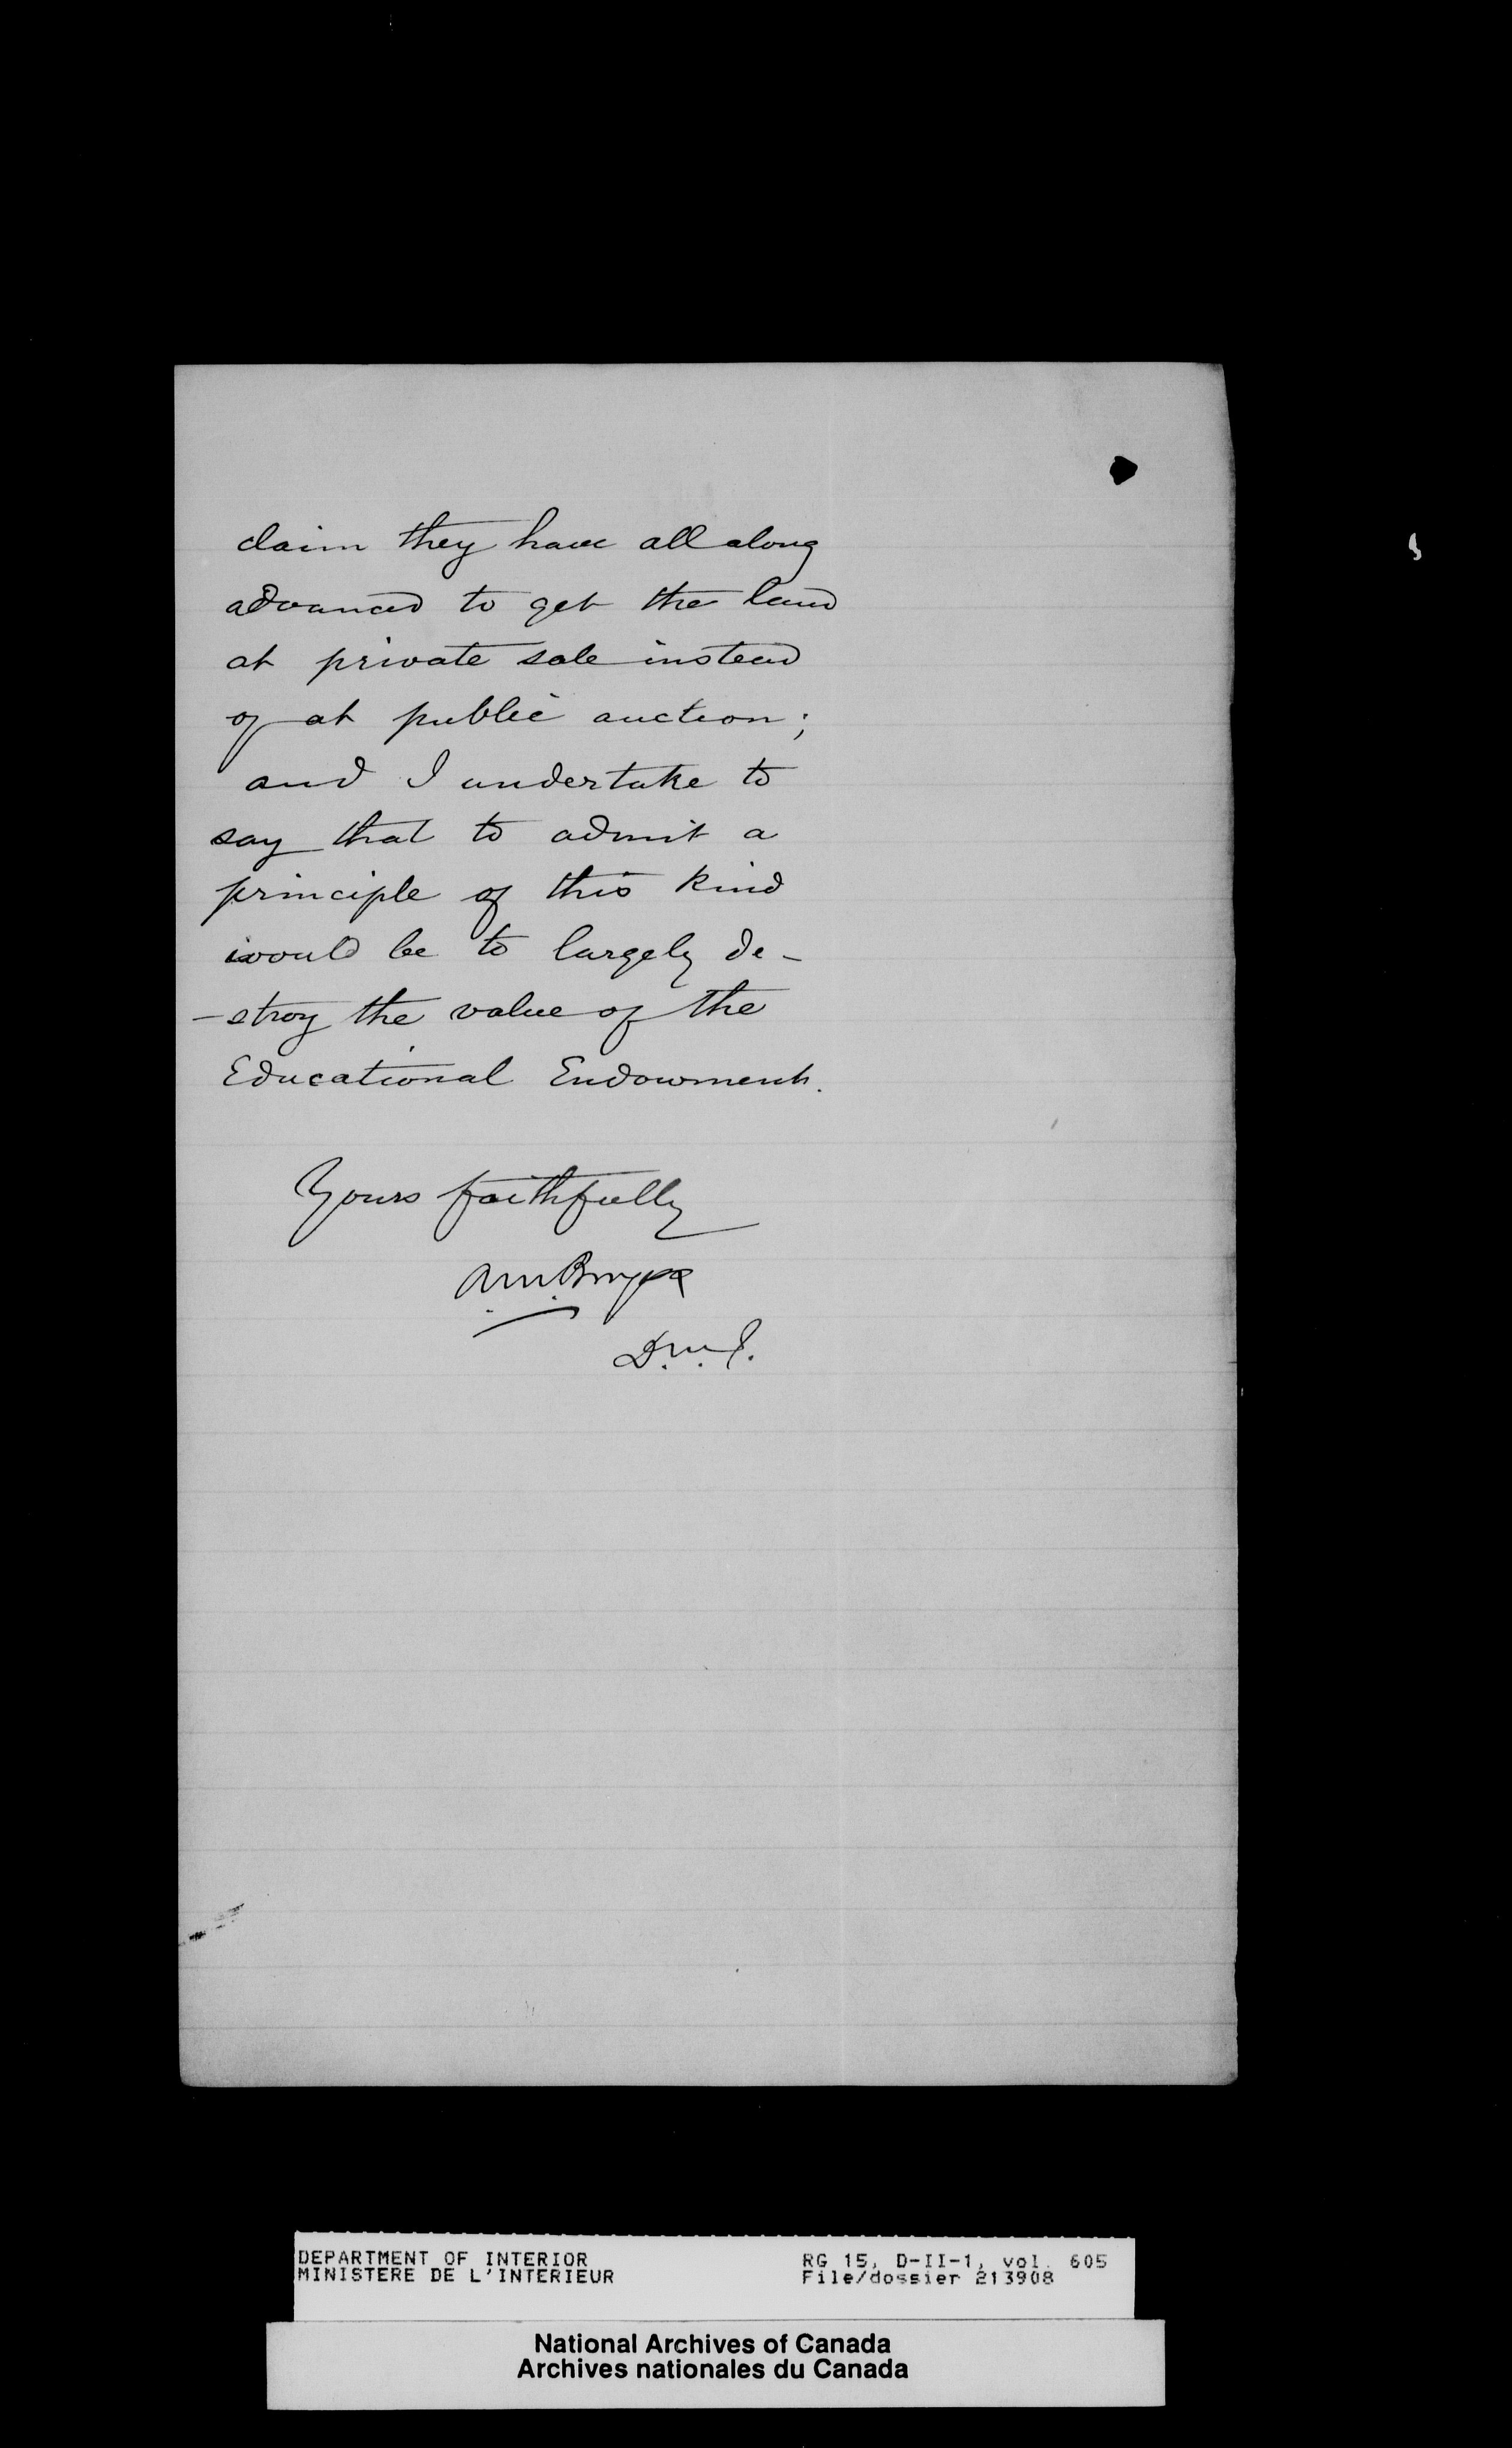 claim they have all along
advanced to get the land
at private sale instead
of at public auction;
and I undertake to
say that to admit a
principle of this kind
would be to largely de-
-stroy the value of the
Educational Endowment.
Yours faithfully
A. M. Burgess
D. M. I.
DEPARTMENT OF INTERIOR
MINISTERE DE L'INTERIEUR
RG 15, D-II-1, vol. 605
File/dossier 213908
National Archives of Canada
Archives nationales du Canada